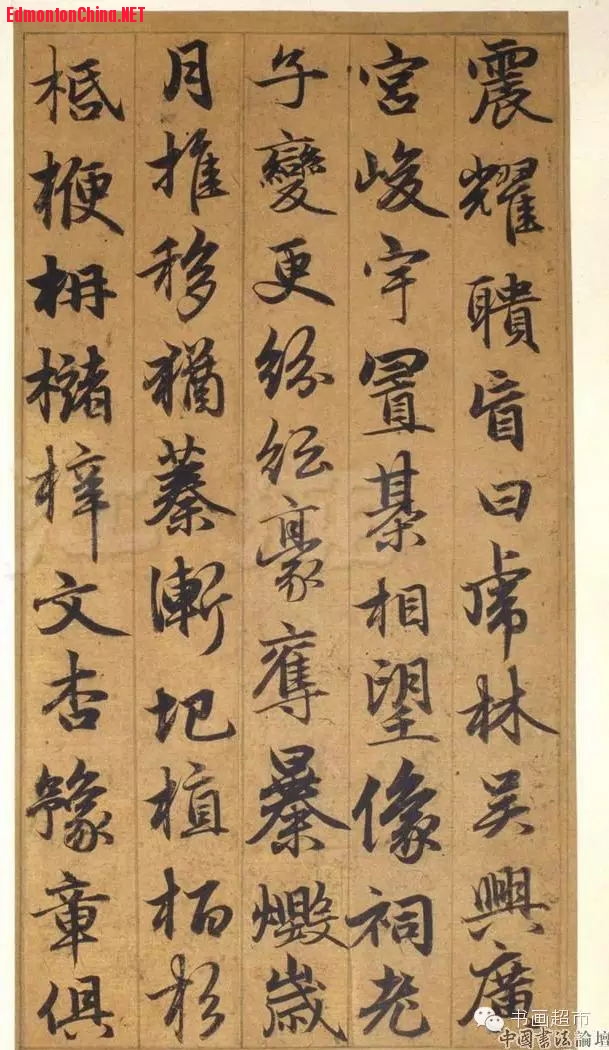 EdmontonChina.NET
震耀聵盲曰虎林吴興廣
宮峻宇置棊相望像祠老
子變更紛紜豪奪暴燬歲
月推移猶蓁漸圮植栢杉
柢楩枏櫧梓文杏豫章俱
书画超市
中國書法論壇